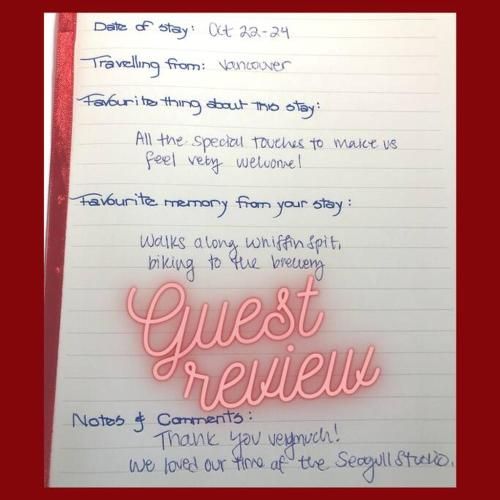 Date of stay: Oct 22-24
Travelling from: Vancouver
Favourite thing about this stay:
All the special touches to make us
feel very welcome!
Favourite memory from your stay:
Walks along Whiffin Spit,
biking to the brewery
Guest
review
Notes & Comments:
Thank you very much!
We loved our time at the Seagull Studio.